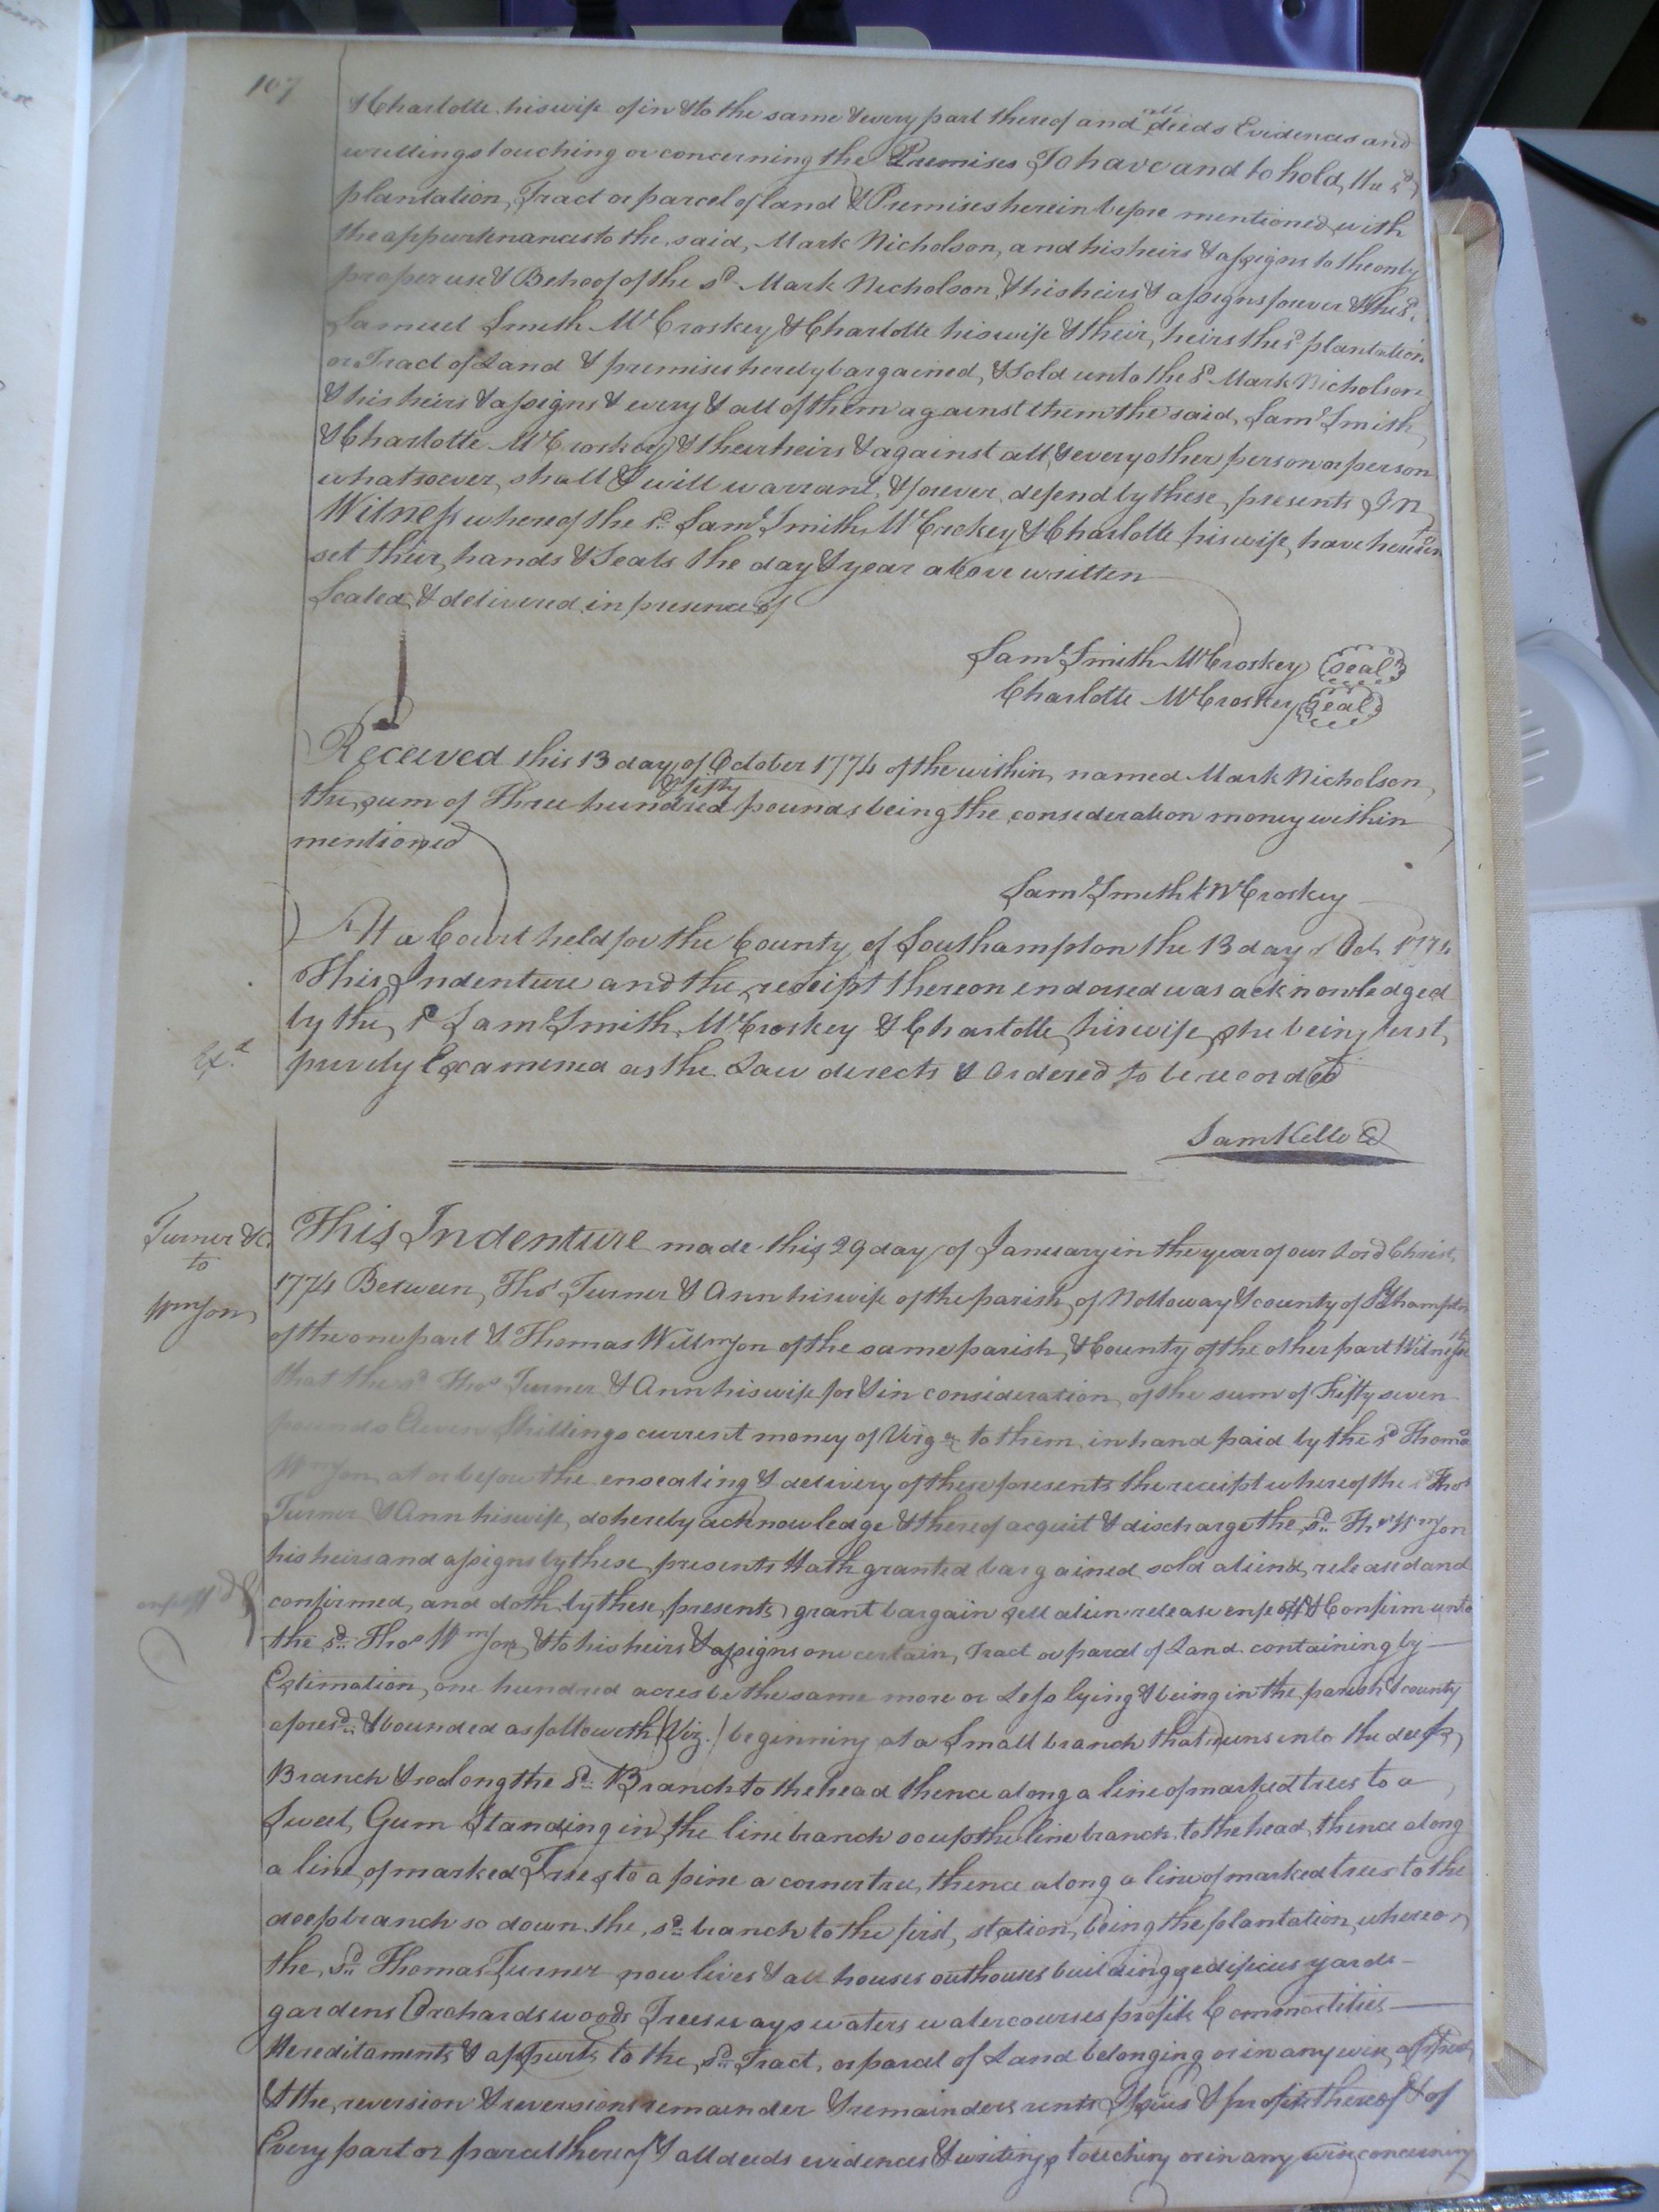 107
& Charlotte his wife of in & to the same & every part thereof and all deeds Evidences and
writings touching or concerning the Premises To have and to hold, the sd
plantation, Tract or parcel of land & Premises herein before mentioned with
the appurtenances to the said, Mark Nicholson, and his heirs & assigns to the only
proper use & Behoof of the sd Mark Nicholson, & his heirs & assigns forever & the sd
Samuel Smith McCroskey & Charlotte his wife & their, heirs the sd plantation
or Tract of Land & premises hereby bargained, & Sold unto the sd Mark Nicholson
& his heirs & assigns & every & all of them against them the said, Saml Smith
& Charlotte McCroskey & their heirs & against all, & every other person or person
whatsoever, shall & will warrant, & forever, defend by these, presents In
Witness whereof the sd Saml Smith McCrokey & Charlotte his wife, have hereunto
set their, hands & Seals the day & year above written
Sealed & delivered in presence of
Saml Smith McCroskey Seal
Charlotte McCroskey Seal
Received this 13 day of October 1774 of the within, named Mark Nicholson
the sum of Three hundred & fifty pounds being the consideration money within
mentioned
Saml Smith McCroskey
At a Court held for the County of Southampton the 13 day of Oct 1774
This Indenture and the receipt thereon endorsed was acknowledged
by the, sd Saml Smith, McCroskey & Charlotte, his wife, she being first,
Exd
privily Examined as the Law directs & Ordered to be recorded
Sam Kello
Turner &c.
to
Wmson
This Indenture made this 29 day of January in the year of our Lord Christ
1774 Between, Thos Turner & Ann his wife of the parish, of Nottoway & county of Sthampton
of the one part & Thomas Willmson of the same parish, & County of the other part Witnesseth
that the sd Thos Turner & Ann his wife for & in consideration of the sum of Fifty seven
pounds Eleven Shillings current money of Virga to them in hand paid by the sd Thomas
Wmson at or before the ensealing & delivery of these presents the receipt whereof the sd Thos
Turner & Ann his wife, do hereby acknowledge & thereof acquit & discharge the sd Thos Wmson
his heirs and assigns by these presents Hath granted bargained sold aliend, released and
confirmed, and doth by these presents grant bargain sell alien release enfeoff & Confirm unto
the sd Thos Wmson & to his heirs & assigns one certain, Tract or parcel of Land containing by
Estimation, one hundred acres be the same more or Less lying & being in the parish & county
aforesd & bounded as followeth (Viz.) beginning at a Small branch that runs into the deep
Branch & so along the sd Branch to the head thence along a line of marked trees to a
Sweet, Gum Standing in the line branch so up the line branch to the head, thence along
a line, of marked Trees to a pine a corner tree, thence along a line of marked trees to the
deep branch so down the, sd branch to the first, station, being the plantation, whereon
the, sd Thomas Turner now lives & all houses outhouses buildings edificies yards
gardens Orchards woods Trees ways waters water courses profits Commodities
Hereditaments & appurts to the, sd Tract, or parcel of Land belonging or in any wise,
& the, reversion & reversions remainder & remainders rents Issues & profits thereof & of
Every part or parcel thereof & all deeds evidences & writings touching or in any wise concerning